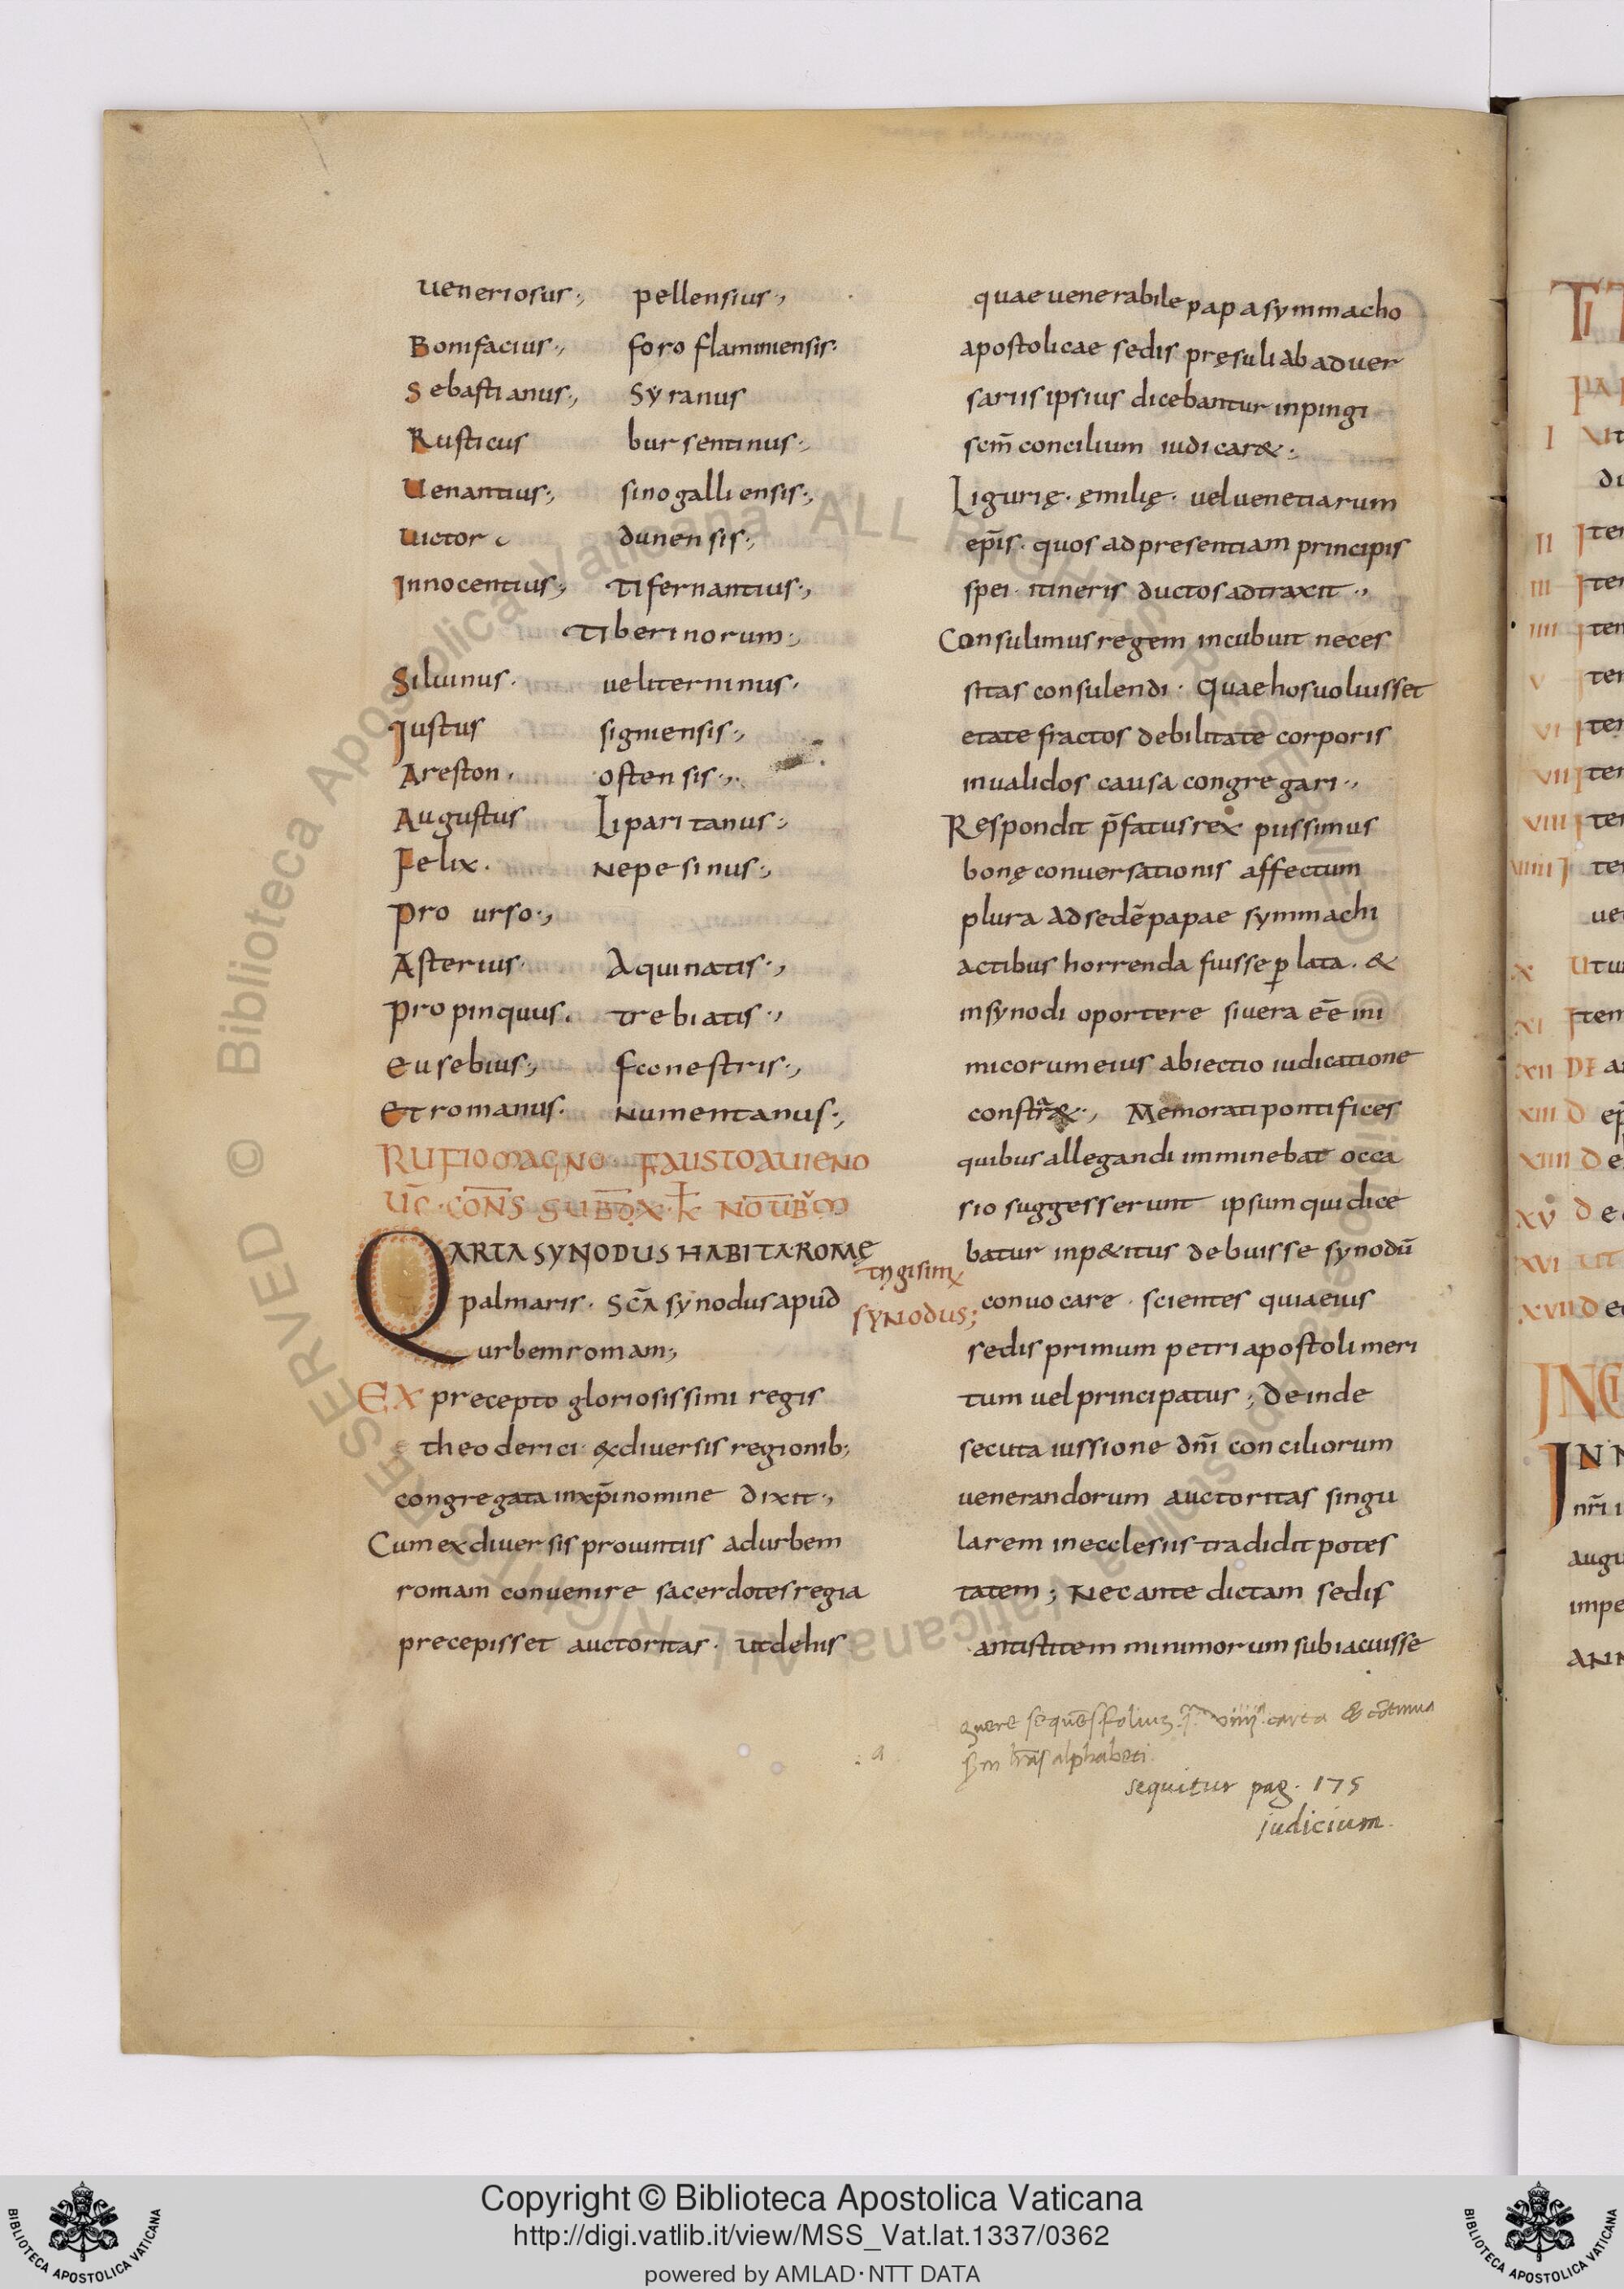 ueneriosus·, pellensius·,
Bonifacius·, foro flaminiensis·
Sebastianus·, Syranus
Rusticus bursentinus·,
Uenantius·, sinogalliensis·,
uictor dunensis·,
Innocentius·, Tifernantius·,
Tiberinorum·,
Siluinus· ueliterninus·
Justus signiensis·,
Areston· ostensis·,
Augustus Liparitanus·,
Felix· Nepesinus·,
Pro urso·,
Asterius· Aquinatis·,
Propinquus· trebiatis·,
eusebius·, fconestris·,
Et romanus· Numentanus·,
RUFIO MAGNO· FAUSTO AUIENO
UC̄· CON̄S SUB D̄ X K̄ NOUB̄M
QARTA SYNODUS HABITA ROMĘ
palmaris· SC̄A synodus apud
urbem romam·,
EX precepto gloriosissimi regis
theoderici· & diuersis regionib;
congregata in xp̄i nomine dixit·,
Cum ex diuersis prouintiis ad urbem
romam conuenire sacerdotes regia
precepisset auctoritas· ut de his
SYNODUS;
quae uenerabile papa symmacho
apostolicae sedis pręsuli ab aduer
sariis ipsius dicebantur inpingi
scm̄ concilium iudicar&·,
Ligurię· ęmilię· uel uenetiarum
ep̄is· quos ad presentiam principis
spei· itineris ductos adtraxit·,
Consulimus regem incubuit neces
sitas consulendi· Quae hos uoluisset
etate fractos debilitate corporis
inualidos causa congregari·,
Respondit p̄fatus rex piissimus
bonę conuersationis affectum
plura ad sedē papae symmachi
actibus horrenda fuisse ꝑlata· &
in synodi oportere si uera eē ini
micorum eius abiectio iudicatione
constr&·, Memorati pontifices
quibus allegandi imminebat occa
sio suggesserunt ipsum qui dice
batur inp&itus debuisse synodū
conuocare· scientes quia eius
sedis primum petri apostoli meri
tum uel principatus; deinde
secuta iussione dn̄i conciliorum
uenerandorum auctoritas singu
larem in ecclesiis tradidit potes
tatem; Nec ante dictam sedis
antistitem minimorum subiacuisse
a
sequitur pag. 175
judicium.
I
II Item
III Item
IIII Item
V Item
VI Item
VII Item
VIII Item
X
XI Item
XII DE
XIII D
XIIII De
XV De
XVI UT
XVII De
Copyright © Biblioteca Apostolica Vaticana
http://digi.vatlib.it/view/MSS_Vat.lat.1337/0362
powered by AMLAD·NTT DATA
BIBLIOTECA APOSTOLICA VATICANA
BIBLIOTECA APOSTOLICA VATICANA